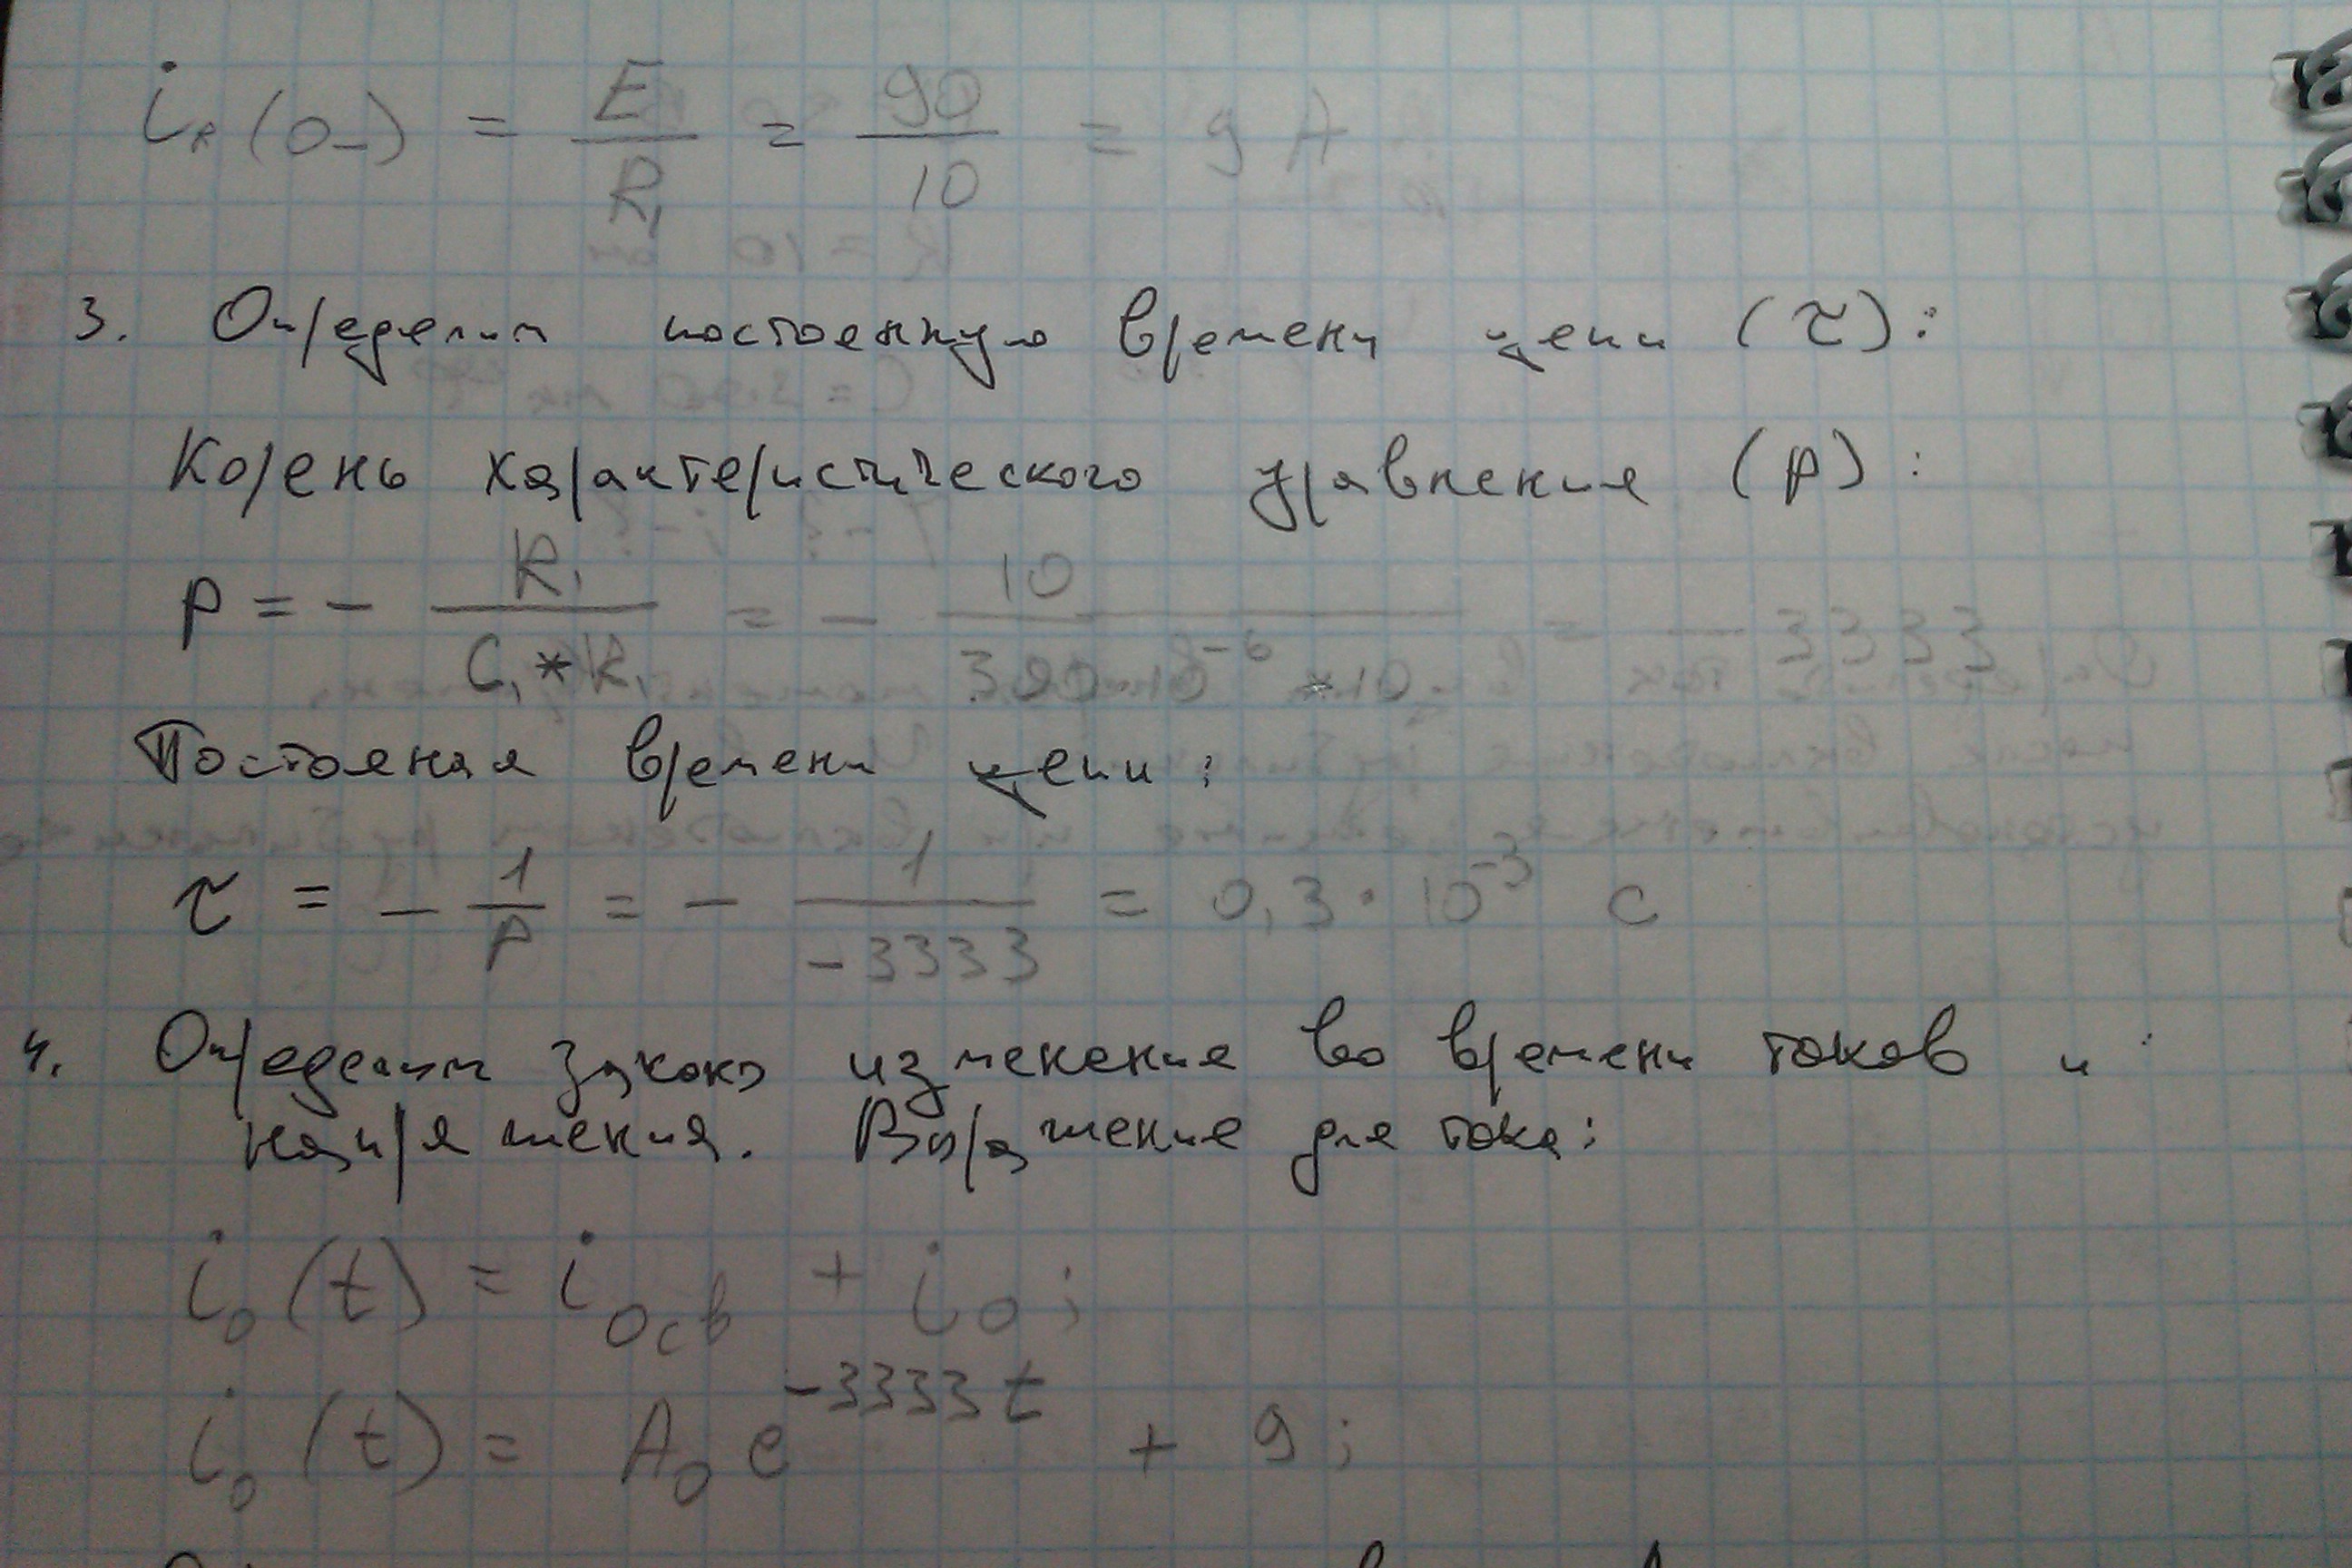 i_R(0-) = E/R₁ = 90/10 = 9 А
3. Определим постоенную времени цепи (τ):
Корень характеристического уравнение (p):
p = - R₁/(C₁*R₁) = - 10/(300·10⁻⁶ *10) = - 3333
Постояная времени цепи:
τ = - 1/p = - 1/-3333 = 0,3·10⁻³ с
4. Определим закон изменение во времени токов и
напряжения. Выражение для тока:
i₀(t) = i₀св + i₀;
i₀(t) = A₀e^(-3333t) + 9;